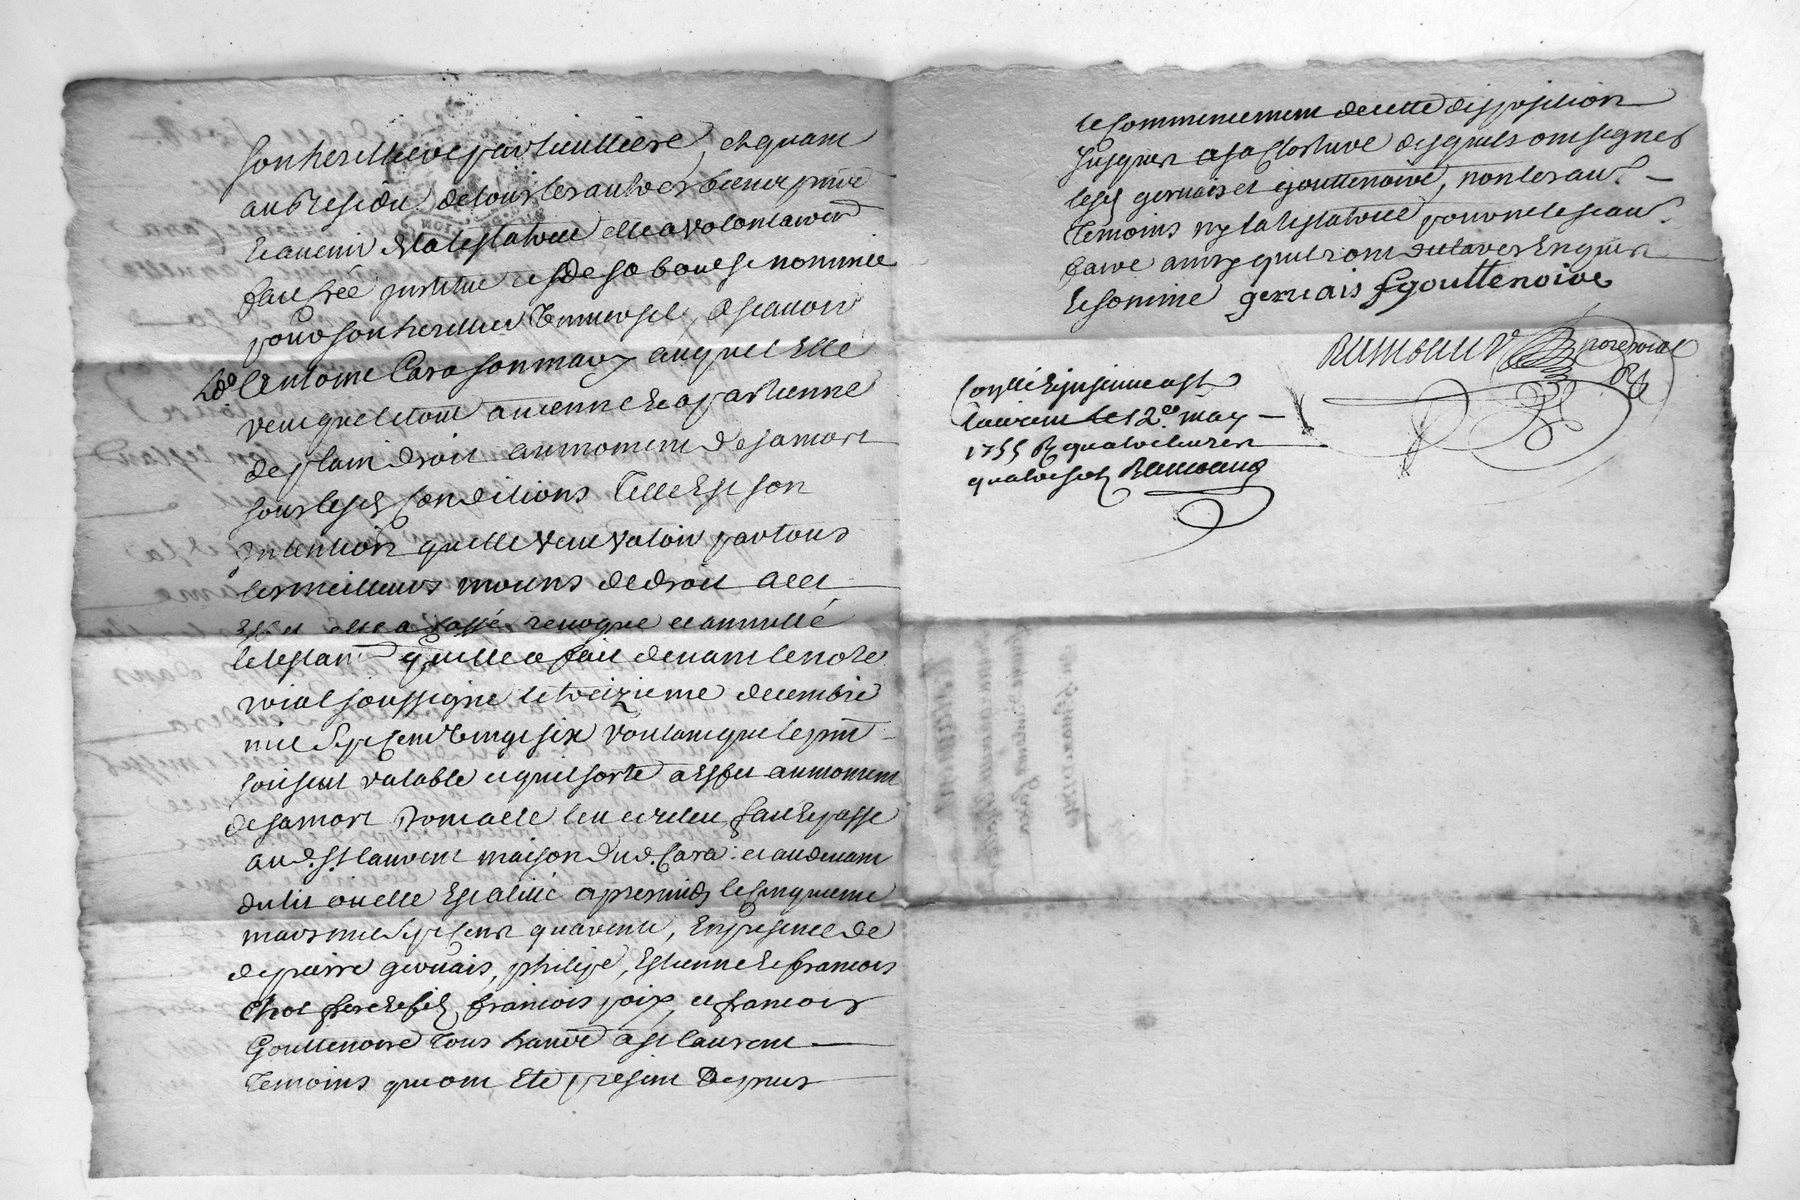 son heritiere particulliere, et quant
au Residu de tous les autres biens pnts
et avenir lad testatrice elle a volontairemt
fait créé institué et de sa bouche nommée
pour son heritier universel, a scavoir
led Antoine Cara son mary auquel elle
veut que le tout avienne et apartienne
de plain droit au moment de sa mort
sous lesd conditions telle est son
intention qu'elle veut valoir par tous
les meilleurs moiens de droit a cet
effet elle a cassé revoque et annullé
le testamt qu'elle a fait devant le nore
roial soussigne le treizieme decembre
mil sept cent vingt six voulant que le pnt
soit seul valable et qu'il sorte a effet au moment
de sa mort dont acte leu et releu fait et passe
aud. St laurent maison dud. Cara et au devant
du lit ou elle est alitée apres midy le cinquieme
mars mil sept cent quarente, en presence de
de pierre gervais, philipe, Estienne et francois
Chol pere et fils, francois poix, et francois
Gouttenoire tous habitts a St laurent
temoins qui ont été present depuis
le commencement de cette disposition
jusques a sa closture desquels ont signes
lesd gervais et gouttenoire, non les autres
temoins ny la testatrice pour ne le scavoir
faire ainsy qu'ils ont declares enquis
et sommé gervais fgouttenoire
Rambaud nore roial
Conllé et insinué a St
laurent le 12e may
1755 R quatre livres
quatre sols Rambaud